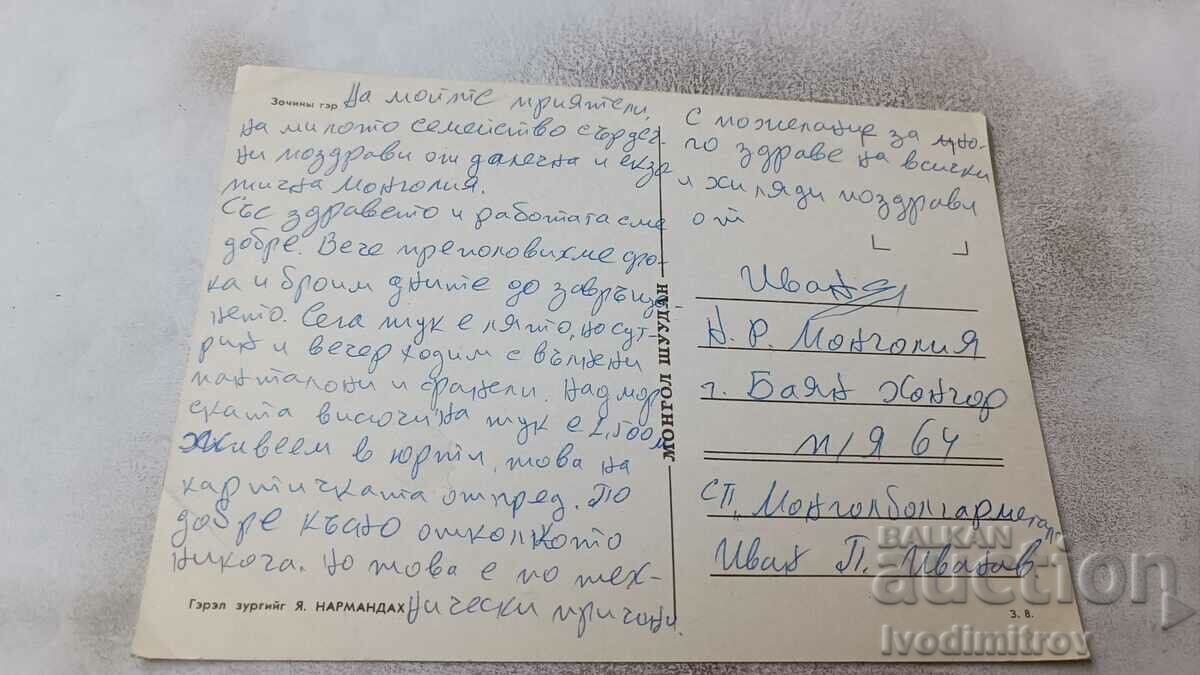 Зочины гэр
На моите приятели,
на милото семейство сърдеч-
ни поздрави от далечна и екзо
тична Монголия.
Със здравето и работата сме
добре. Вече преполовихме сро-
ка и броим дните до завръща-
нето. Сега тук е лято, но сут-
рин и вечер ходим с вълнени
панталони и фанели. Надмор
ската височина тук е 2,500 м
живеем в юрти, това на
картичката отпред. По
добре късно отколкото
никога. Но това е по тех-
нически причини.
Гэрэл зургийг Я. НАРМАНДАХ
МОНГОЛ ШУУДАН
С пожелание за мно-
го здраве на всички
и хиляди поздрави
от
Иван
Н. Р. Монголия
г. Баян Хонгор
п/я 64
СП. Монголболгарметал
Иван П. Иванов
З. 8.
BALKAN
auction
Ivodimitrov